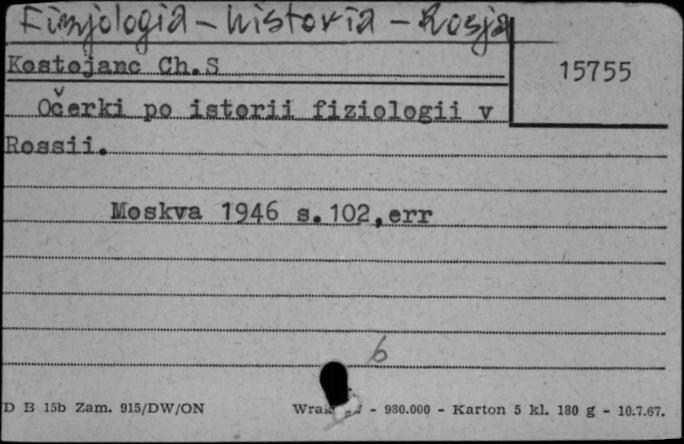 Fizjologia - historia - Rosja
Kostojanc Ch.S
15755
Očerki po istorii fiziologii v
Rossii.
Moskva 1946 s.102,err
6
D B 15b Zam. 915/DW/ON - 980.000 - Karton 5 kl. 180 g - 10.7.67.